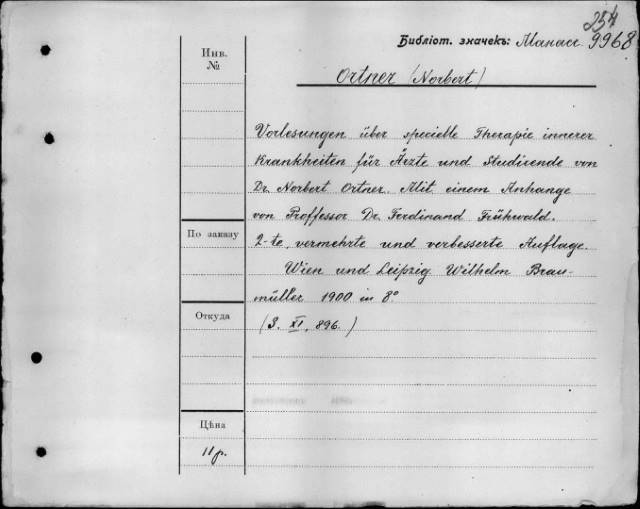 254
Библіот. значекъ: Манасс 9968
Инв. №
Ortner (Norbert)
Vorlesungen über specielle Therapie innerer
Krankheiten für Ärzte und Studirende von
Dr. Norbert Ortner. Mit einem Anhange
von Proffessor Dr. Ferdinand Frühwald.
2-te, vermehrte und verbesserte Auflage.
Wien und Leipzig Wilhelm Brau-
müller 1900 in 8°
(3. XI, 896.)
По заказу
Откуда
Цѣна
11 р.